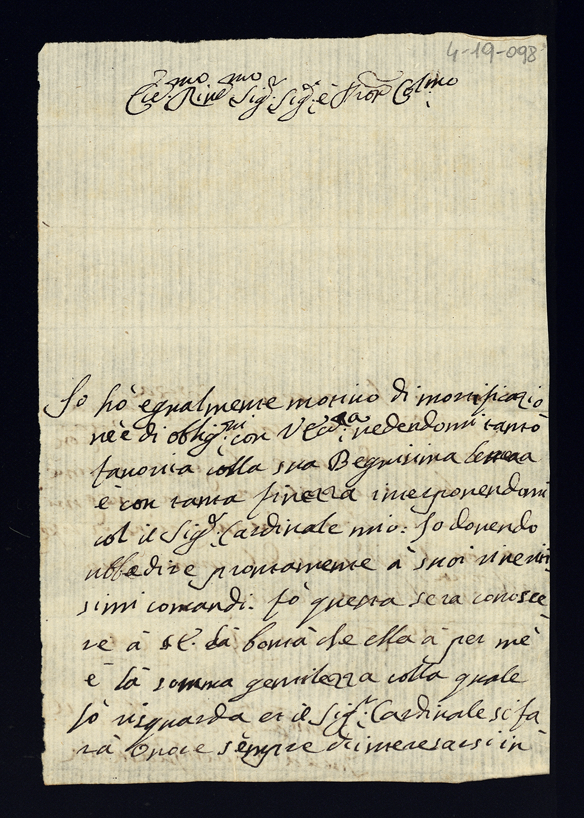 4-19-098
Ecc.mo Rine.mo Sig.r Sig.r è Pron Col.mo
Io hò egualmente motivo di mortificazio
ne è di oblig.ni con V Ecc.za vedendomi tanto
favorita colla sua Begnissima lettera
è con tanta finezza interponendomi
col il Sig.r Cardinale mio: Io dovendo
ubbædire prontamente à suoi riveriti
simi comandi. fò questa sera conosce
re à SE. là bontà che ella à per mè
è là somma gentilezza colla quale
lò risguarda et il Sig.r Cardinale si fa
rà sempre d'interesarsi in